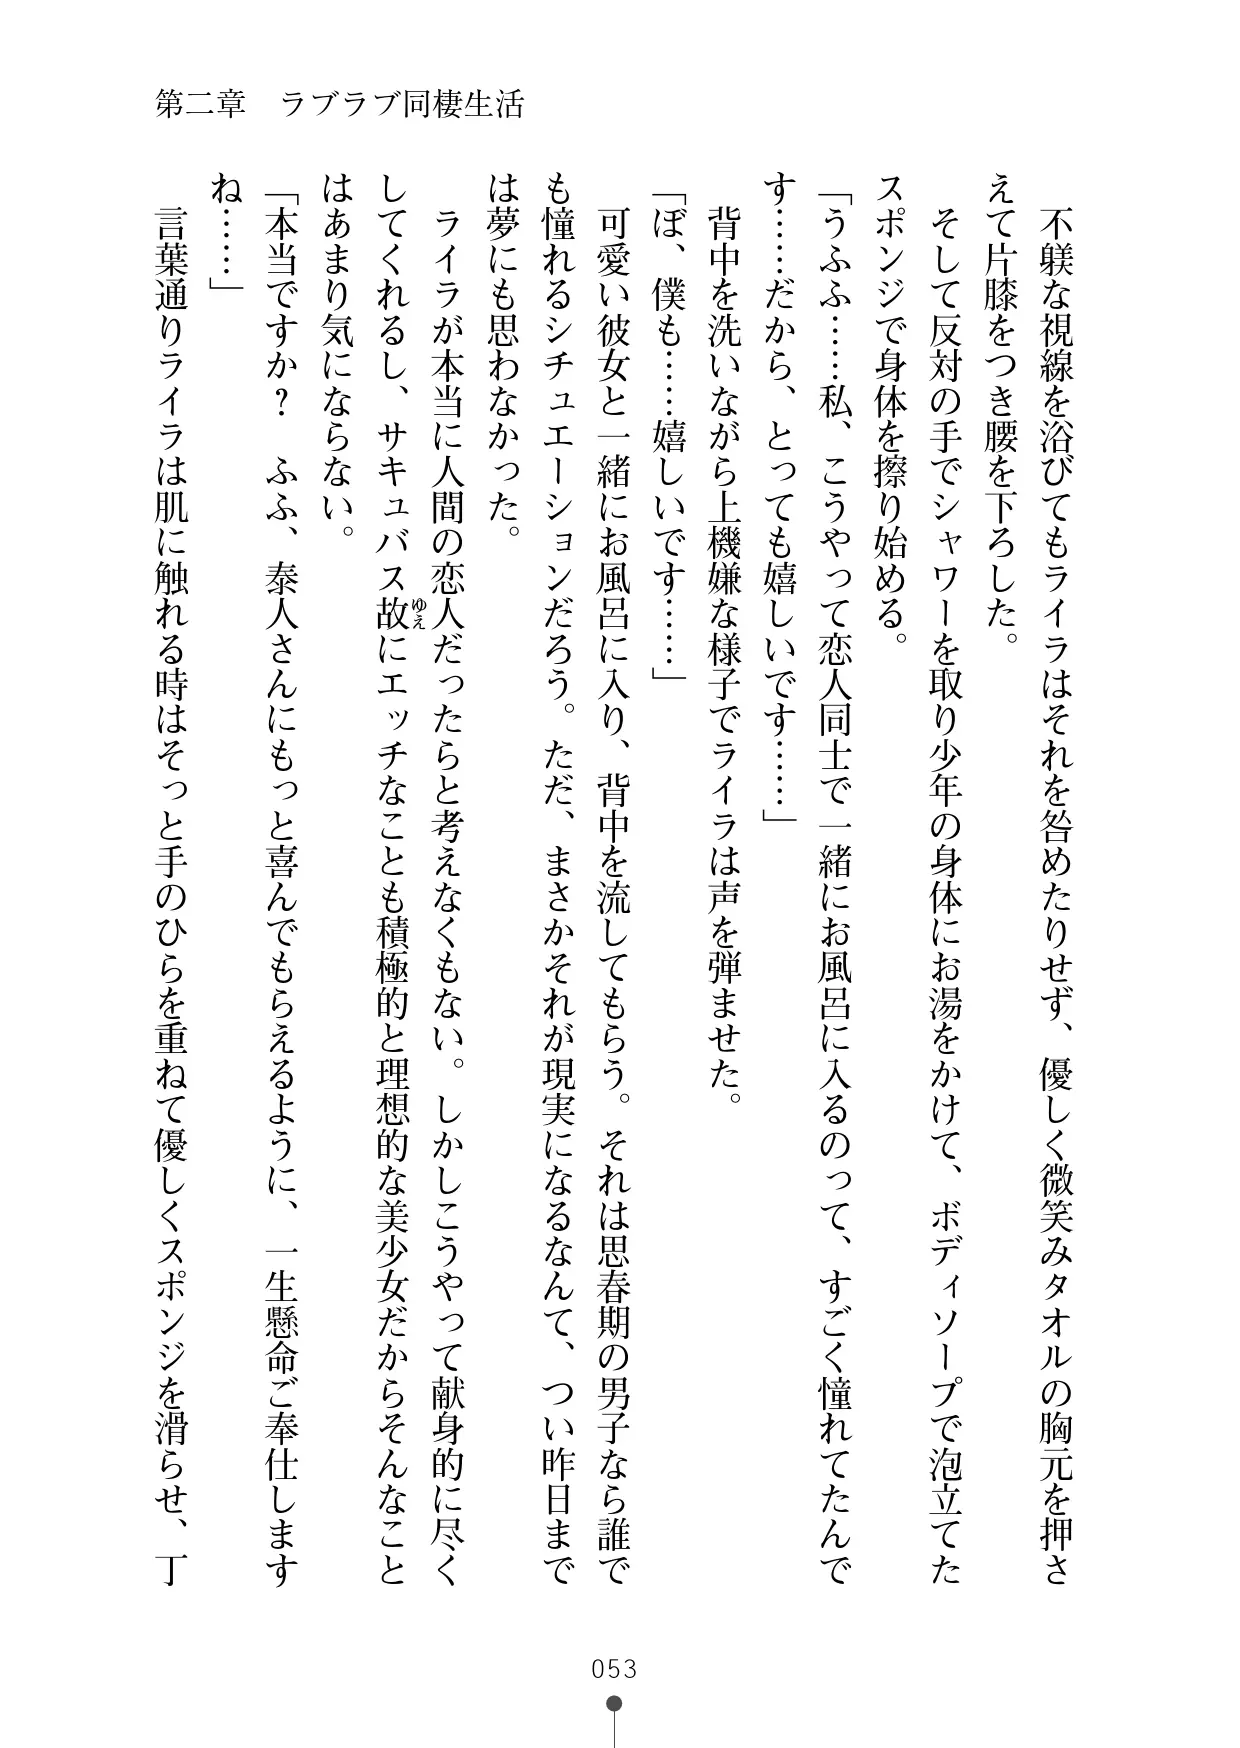 第二章　ラブラブ同棲生活
　不躾な視線を浴びてもライラはそれを咎めたりせず、優しく微笑みタオルの胸元を押さ
えて片膝をつき腰を下ろした。
　そして反対の手でシャワーを取り少年の身体にお湯をかけて、ボディソープで泡立てた
スポンジで身体を擦り始める。
「うふふ……私、こうやって恋人同士で一緒にお風呂に入るのって、すごく憧れてたんで
す……だから、とっても嬉しいです……」
　背中を洗いながら上機嫌な様子でライラは声を弾ませた。
「ぼ、僕も……嬉しいです……」
　可愛い彼女と一緒にお風呂に入り、背中を流してもらう。それは思春期の男子なら誰で
も憧れるシチュエーションだろう。ただ、まさかそれが現実になるなんて、つい昨日まで
は夢にも思わなかった。
　ライラが本当に人間の恋人だったらと考えなくもない。しかしこうやって献身的に尽く
してくれるし、サキュバス故ゆえにエッチなことも積極的と理想的な美少女だからそんなこと
はあまり気にならない。
「本当ですか？　ふふ、泰人さんにもっと喜んでもらえるように、一生懸命ご奉仕します
ね……」
　言葉通りライラは肌に触れる時はそっと手のひらを重ねて優しくスポンジを滑らせ、丁
053